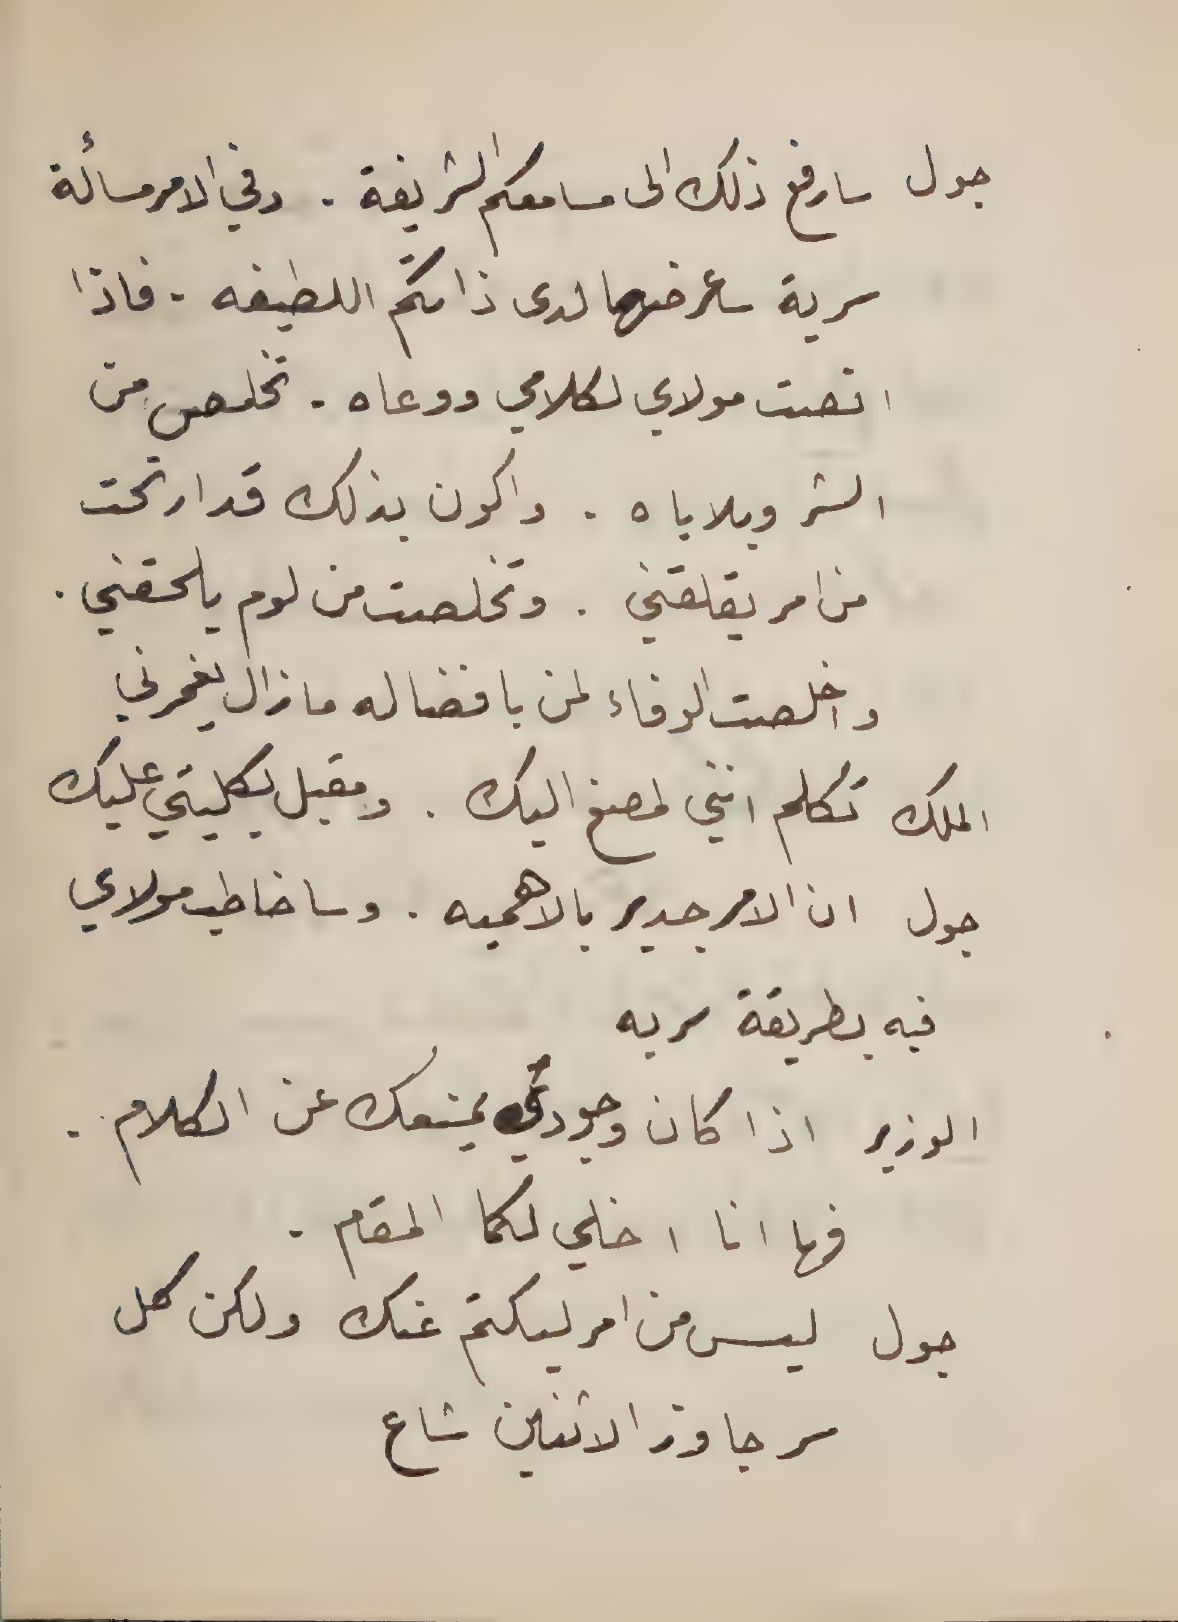 جول سارفع ذلك الى مسامعكم الشريفة . وفي الامر مسائلة
سرية ساعرضها لدى ذاتكم اللطيفه . فاذا
انصت مولاي لكلامي ووعاه . تخلص من
الشر وبلاياه . واكون بذلك قد ارتحت
من امر يقلقني . وتخلصت من لوم يلحقني .
واخلصت الوفاء لمن بافضاله مازال يغمرني
الملك تكلم انني لمصغ اليك . ومقبل بكليتي عليك
جول ان الامر جدير بالاهميه . وساخاطب مولاي
فيه بطريقة سريه
الوزير اذا كان وجودي يمنعك عن الكلام .
فها انا اخلي لكما المقام .
جول ليس من امر ليكتم عنك ولكن كل
سر جاوز الاثنين شاع